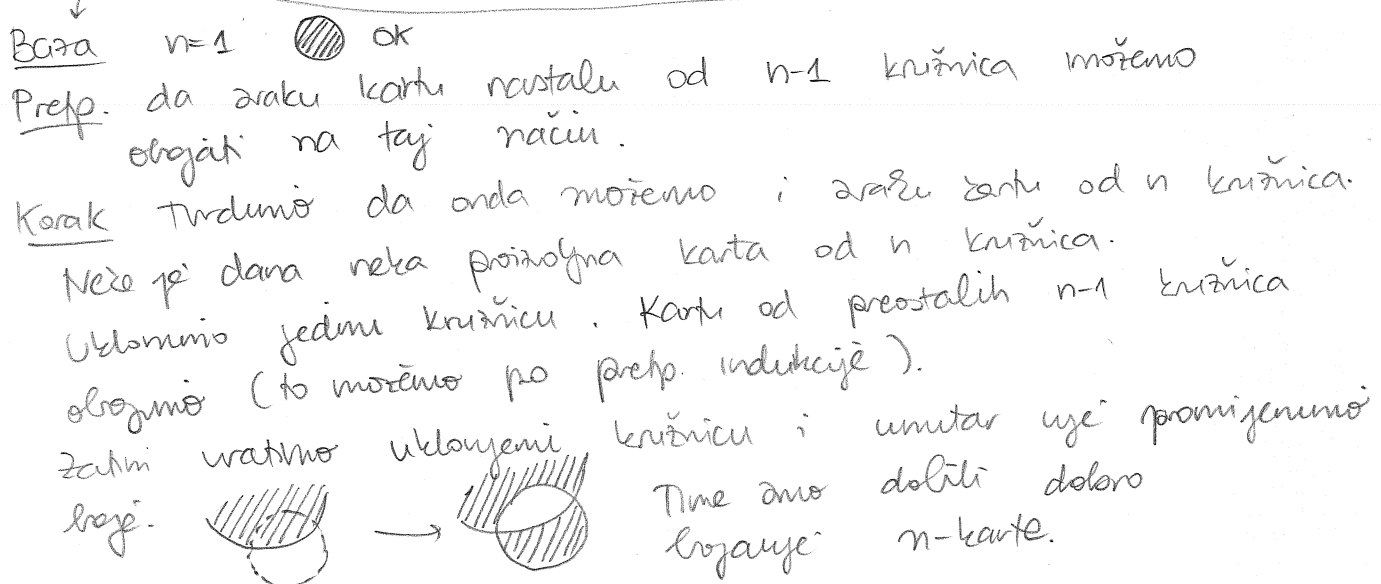 Baza n=1 OK
Pretp. da svaku kartu nastalu od n-1 kružnica možemo
obojati na taj način.
Korak Tvrdimo da onda možemo i svaku kartu od n kružnica.
Neka je dana neka proizvoljna karta od n kružnica.
Uklonimo jednu kružnicu. Kartu od preostalih n-1 kružnica
obojimo (to možemo po pretp. indukcije).
Zatim vratimo uklonjenu kružnicu i unutar nje promijenimo
boje. Time smo dobili dobro
bojanje n-karte.